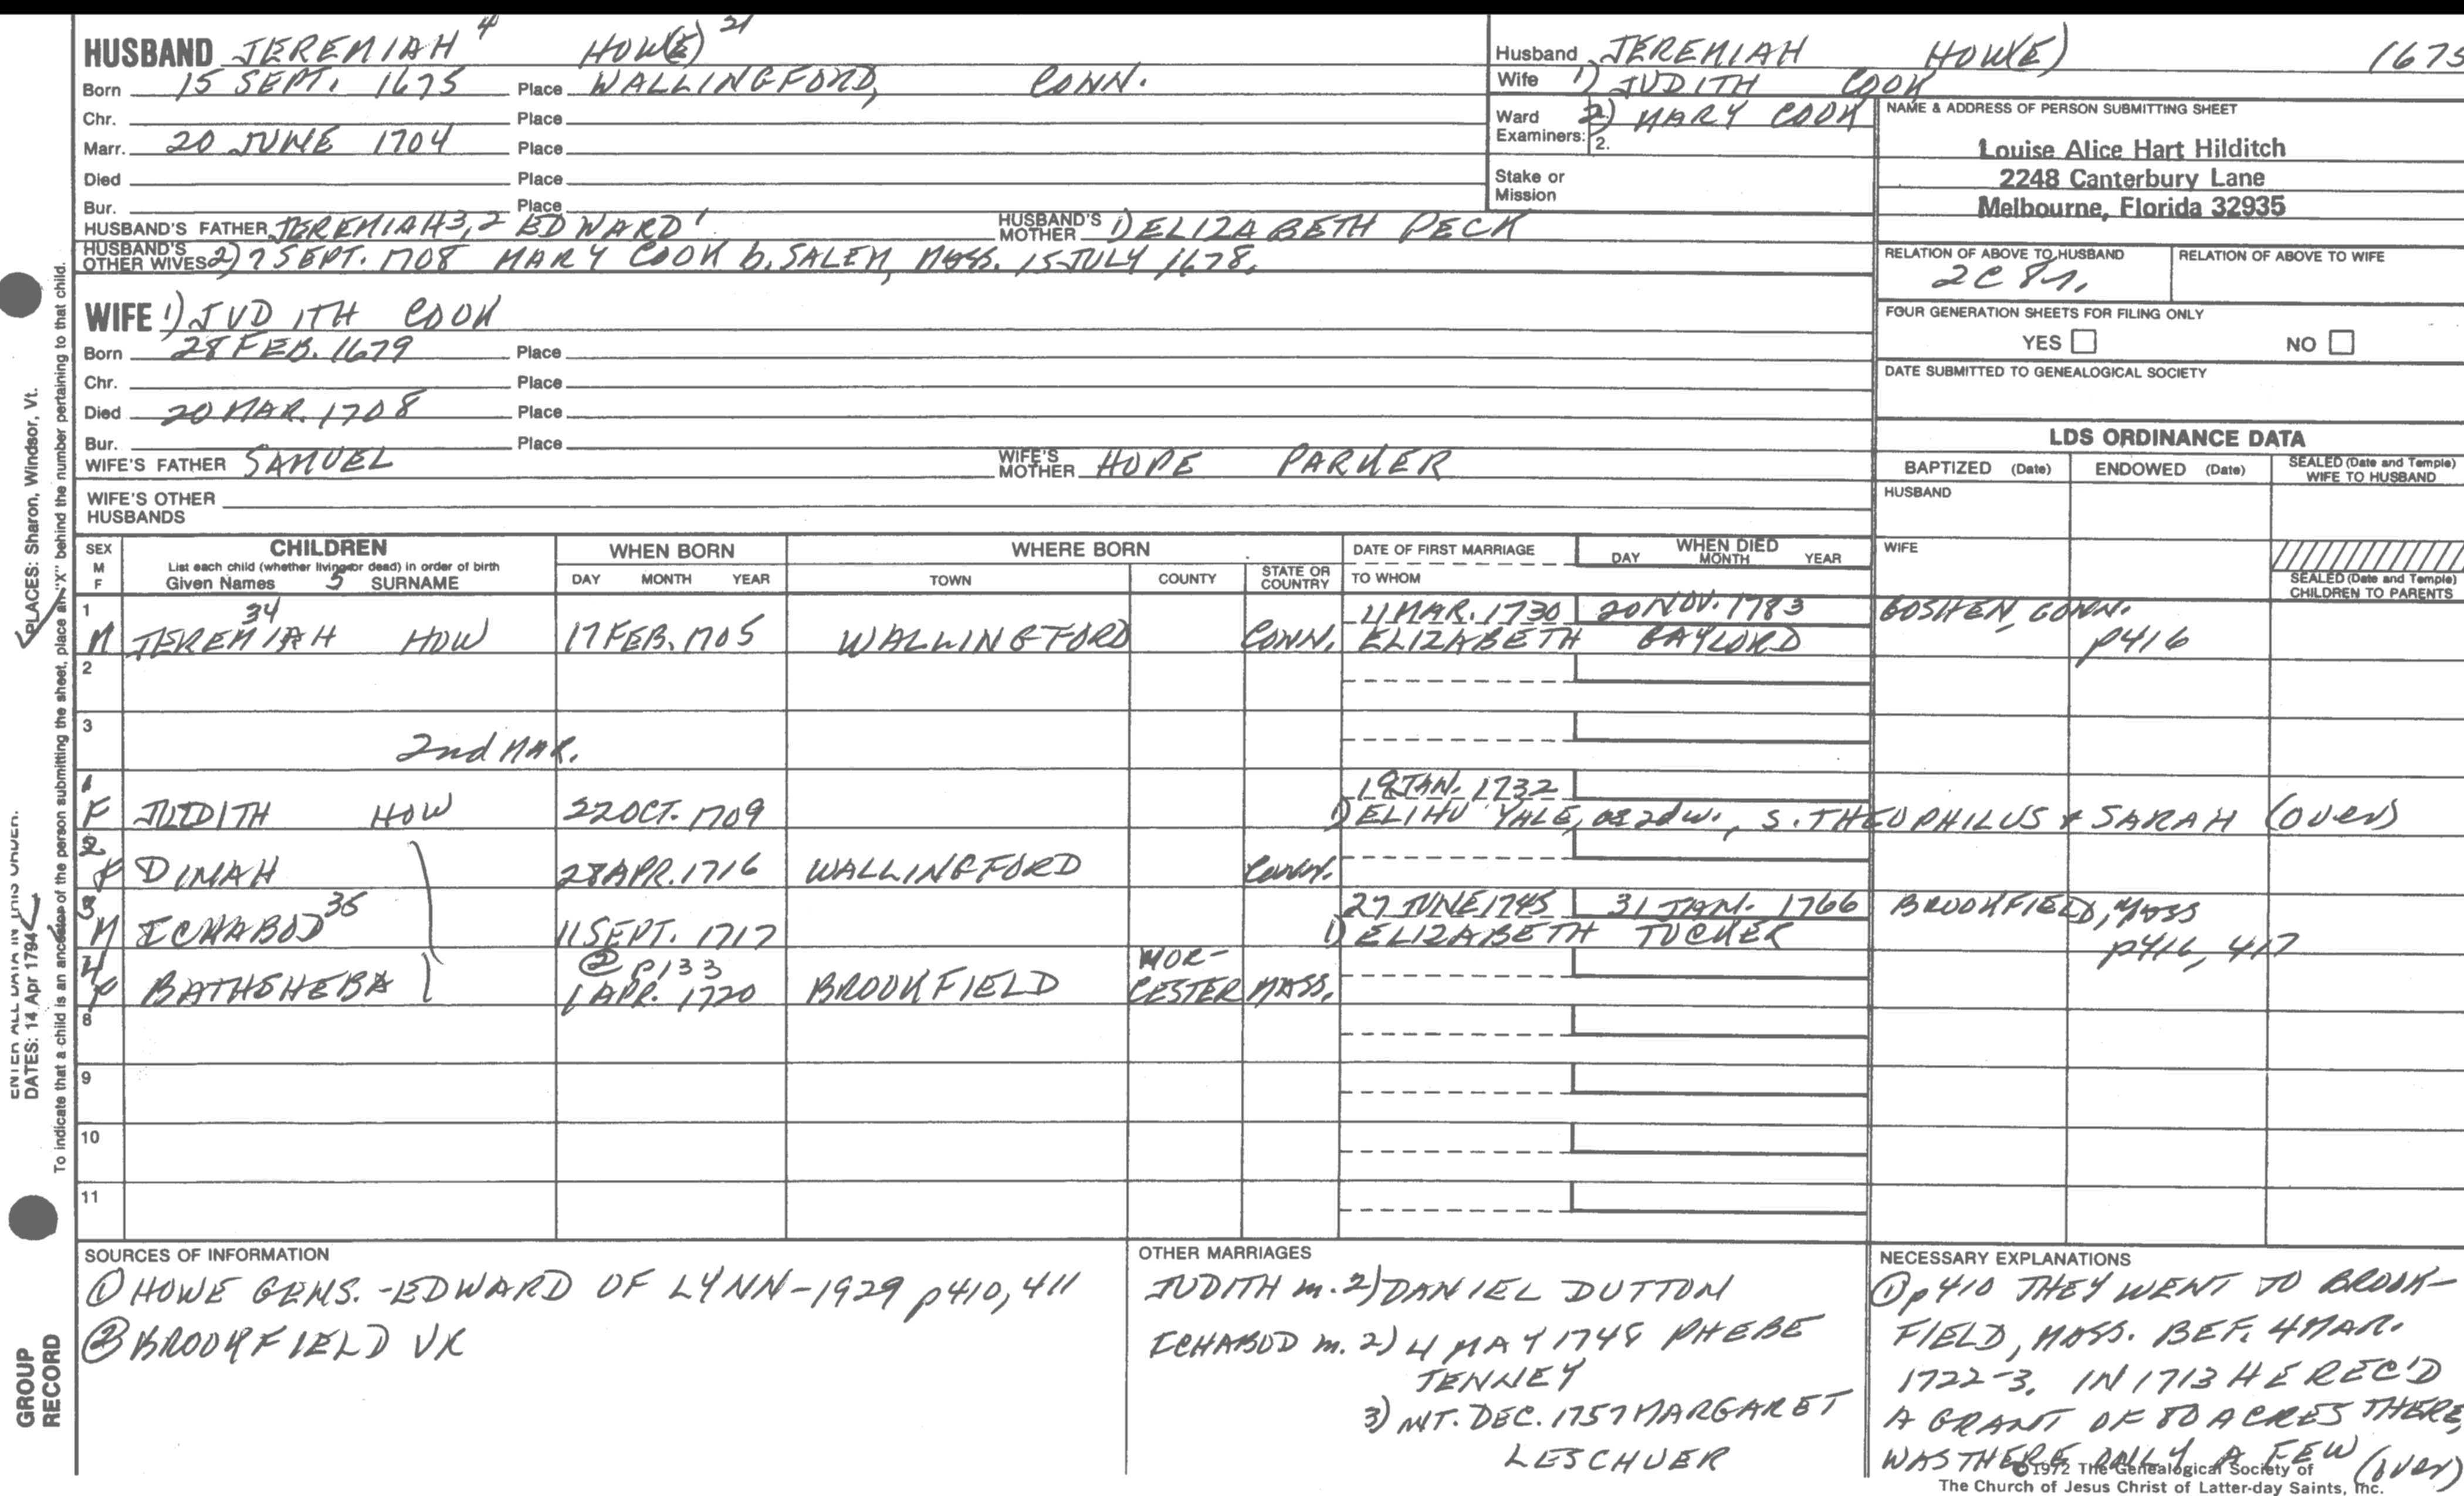 HUSBAND JEREMIAH 4 HOW(E) 21
Born 15 SEPT. 1675 Place WALLINGFORD, CONN.
Chr. Place
Marr. 20 JUNE 1704 Place
Died Place
Bur. Place
HUSBAND'S FATHER JEREMIAH 3, 2 EDWARD 1 HUSBAND'S MOTHER 1) ELIZABETH PECK
HUSBAND'S OTHER WIVES 2) ? SEPT. 1708 MARY COOK b. SALEM, MASS. 15 JULY 1678.
WIFE 1) JUDITH COOK
Born 28 FEB. 1679 Place
Chr. Place
Died 20 MAR. 1708 Place
Bur. Place
WIFE'S FATHER SAMUEL WIFE'S MOTHER HOPE PARKER
WIFE'S OTHER HUSBANDS
Husband JEREMIAH HOW(E) 1675
Wife 1) JUDITH COOK
Ward 2) MARY COOK
Examiners: 2.
Stake or Mission
NAME & ADDRESS OF PERSON SUBMITTING SHEET
Louise Alice Hart Hilditch
2248 Canterbury Lane
Melbourne, Florida 32935
RELATION OF ABOVE TO HUSBAND RELATION OF ABOVE TO WIFE
2C 8
FOUR GENERATION SHEETS FOR FILING ONLY
YES NO
DATE SUBMITTED TO GENEALOGICAL SOCIETY
LDS ORDINANCE DATA
BAPTIZED (Date) ENDOWED (Date) SEALED (Date and Temple) WIFE TO HUSBAND
HUSBAND
WIFE
SEALED (Date and Temple) CHILDREN TO PARENTS
SEX M F CHILDREN WHEN BORN WHERE BORN DATE OF FIRST MARRIAGE WHEN DIED
List each child (whether living or dead) in order of birth
Given Names 5 SURNAME DAY MONTH YEAR TOWN COUNTY STATE OR COUNTRY TO WHOM DAY MONTH YEAR
1 34 11 MAR. 1730 20 NOV. 1783 GOSHEN, CONN.
M JEREMIAH HOW 17 FEB. 1705 WALLINGFORD CONN. ELIZABETH GAYLORD p416
2
3
2nd MAR.
1 19 JAN. 1732
F JUDITH HOW 22 OCT. 1709 1) ELIHU YALE, as 2d w., S. THEOPHILUS + SARAH (over)
2
F DINAH 28 APR. 1716 WALLINGFORD CONN.
3 35 27 JUNE 1745 31 JAN. 1766 BROOKFIELD, MASS
M ICHABOD 11 SEPT. 1717 1) ELIZABETH TUCKER p416, 417
4 ② p133 WOR-
F BATHSHEBA 1 APR. 1720 BROOKFIELD CESTER MASS.
8
9
10
11
SOURCES OF INFORMATION
① HOWE GENS. - EDWARD OF LYNN - 1929 p410, 411
② BROOKFIELD VR
OTHER MARRIAGES
JUDITH m. 2) DANIEL DUTTON
ICHABOD m. 2) 4 MAY 1748 PHEBE
TENNEY
3) INT. DEC. 1757 MARGARET
LESCHUER
NECESSARY EXPLANATIONS
① p410 THEY WENT TO BROOK-
FIELD, MASS. BEF. 4 MAR.
1722-3. IN 1713 HE REC'D
A GRANT OF 80 ACRES THERE,
WAS THERE ONLY A FEW (over)
©1972 The Genealogical Society of
The Church of Jesus Christ of Latter-day Saints, Inc.
PLACES: Sharon, Windsor, Vt.
To indicate that a child is an ancestor of the person submitting the sheet, place an "X" behind the number pertaining to that child.
ENTER ALL DATA IN THIS ORDER:
DATES: 14 Apr 1794
GROUP
RECORD